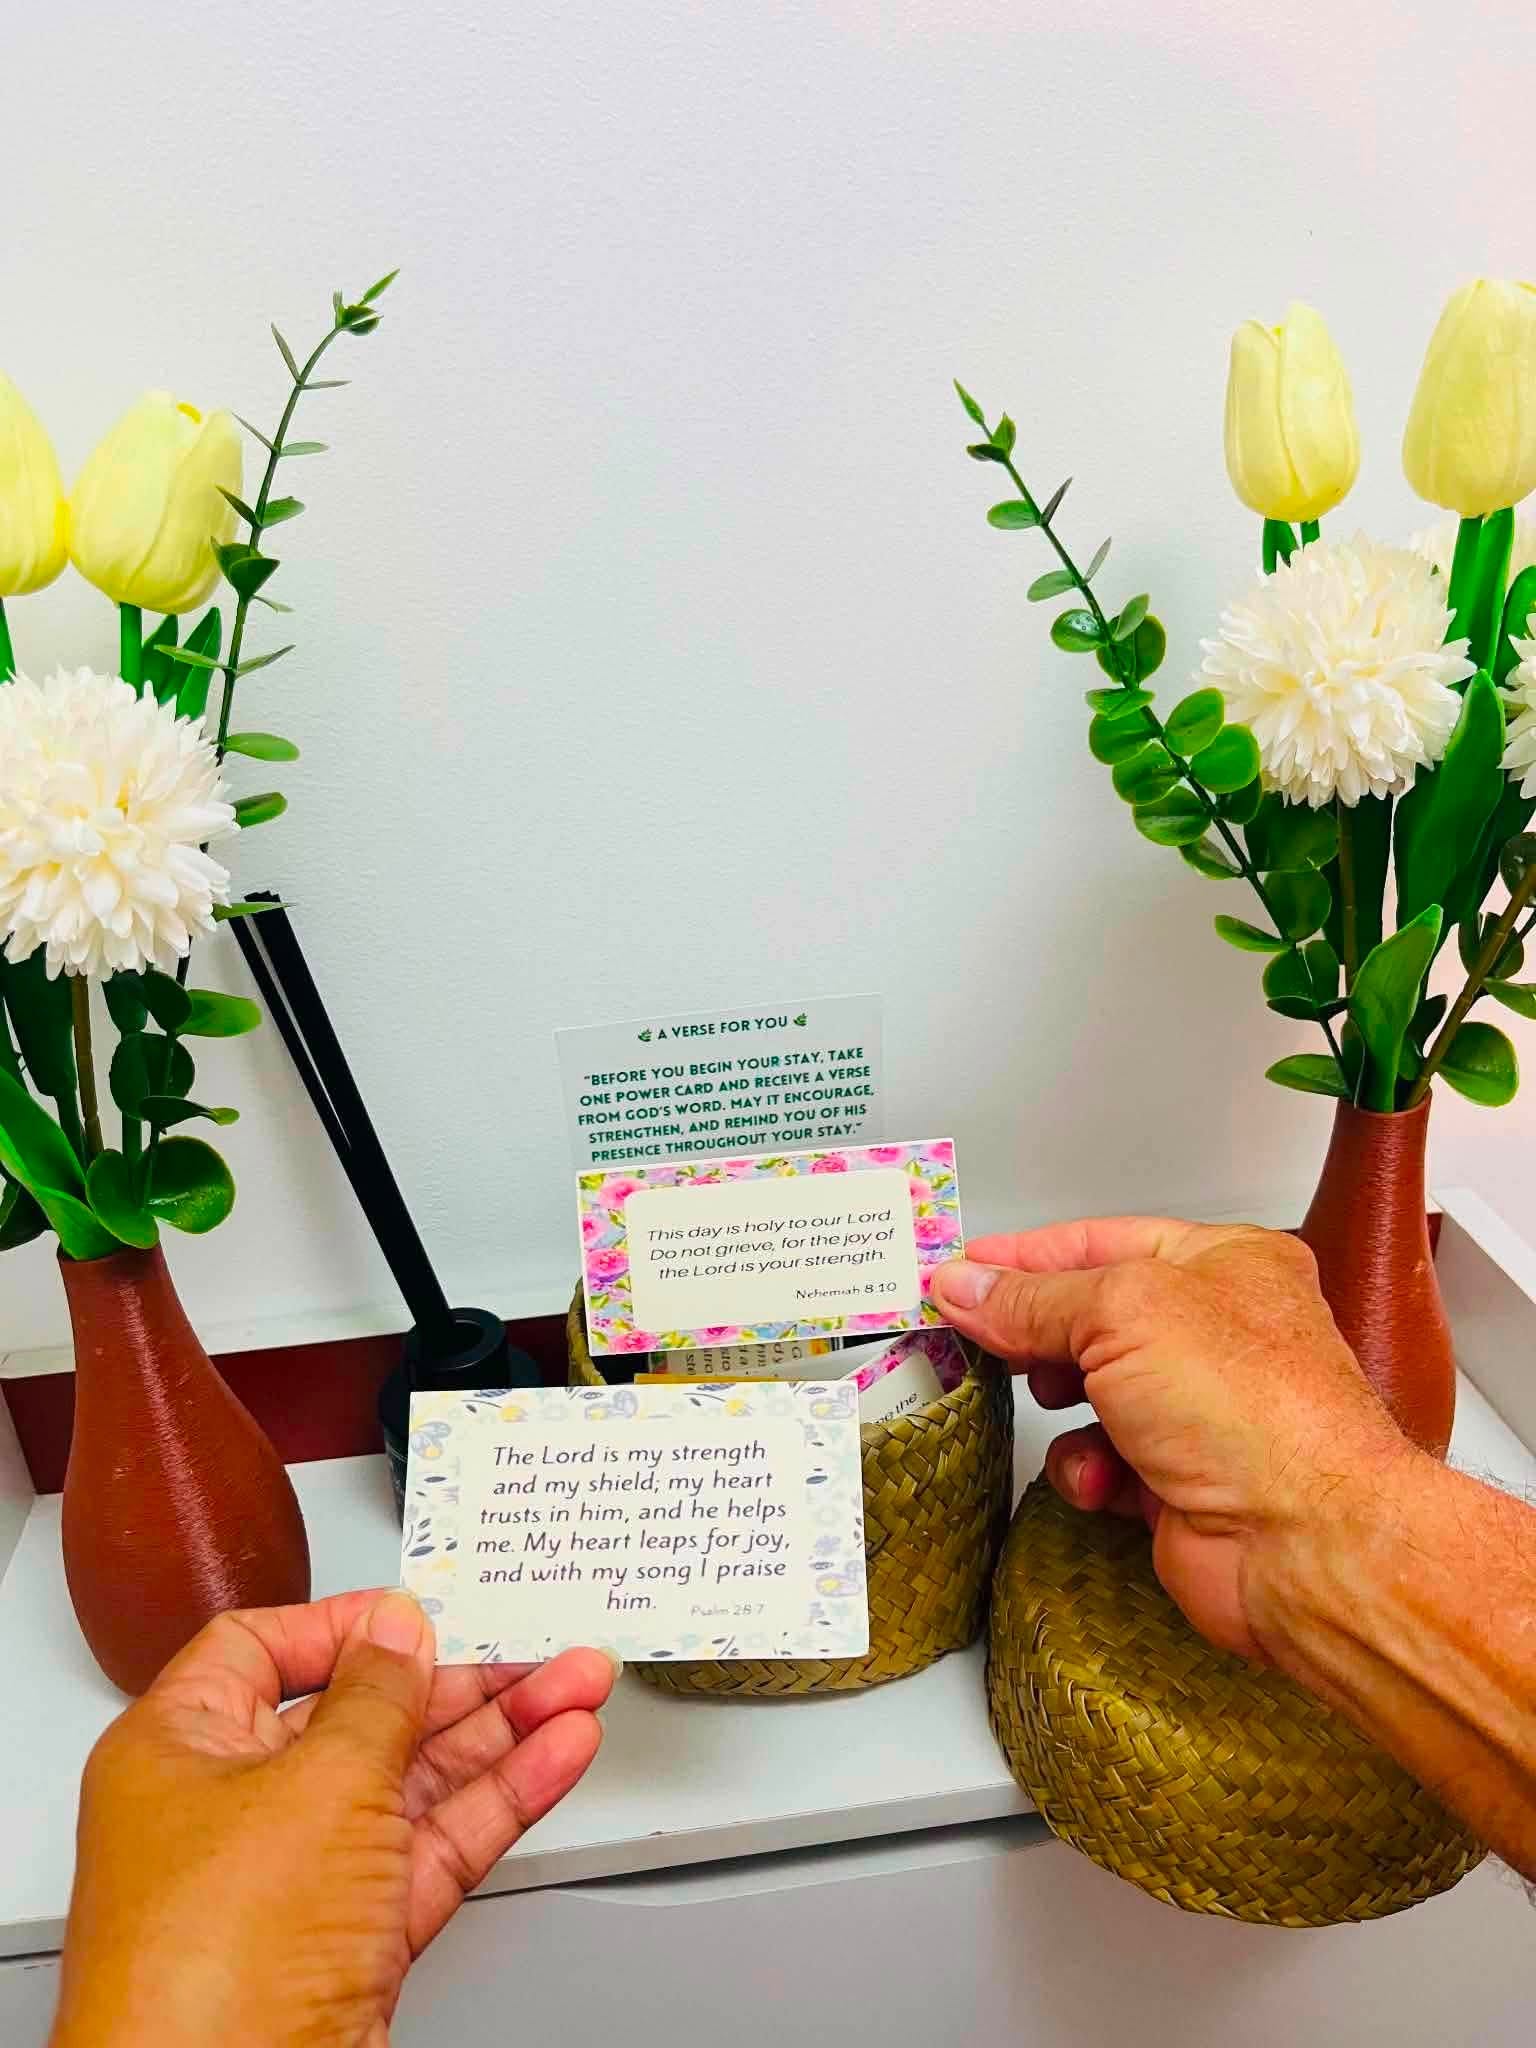 A VERSE FOR YOU
"BEFORE YOU BEGIN YOUR STAY, TAKE
ONE POWER CARD AND RECEIVE A VERSE
FROM GOD'S WORD. MAY IT ENCOURAGE,
STRENGTHEN, AND REMIND YOU OF HIS
PRESENCE THROUGHOUT YOUR STAY."
This day is holy to our Lord.
Do not grieve, for the joy of
the Lord is your strength.
Nehemiah 8:10
the
The Lord is my strength
and my shield; my heart
trusts in him, and he helps
me. My heart leaps for joy,
and with my song I praise
him.
Psalm 28:7